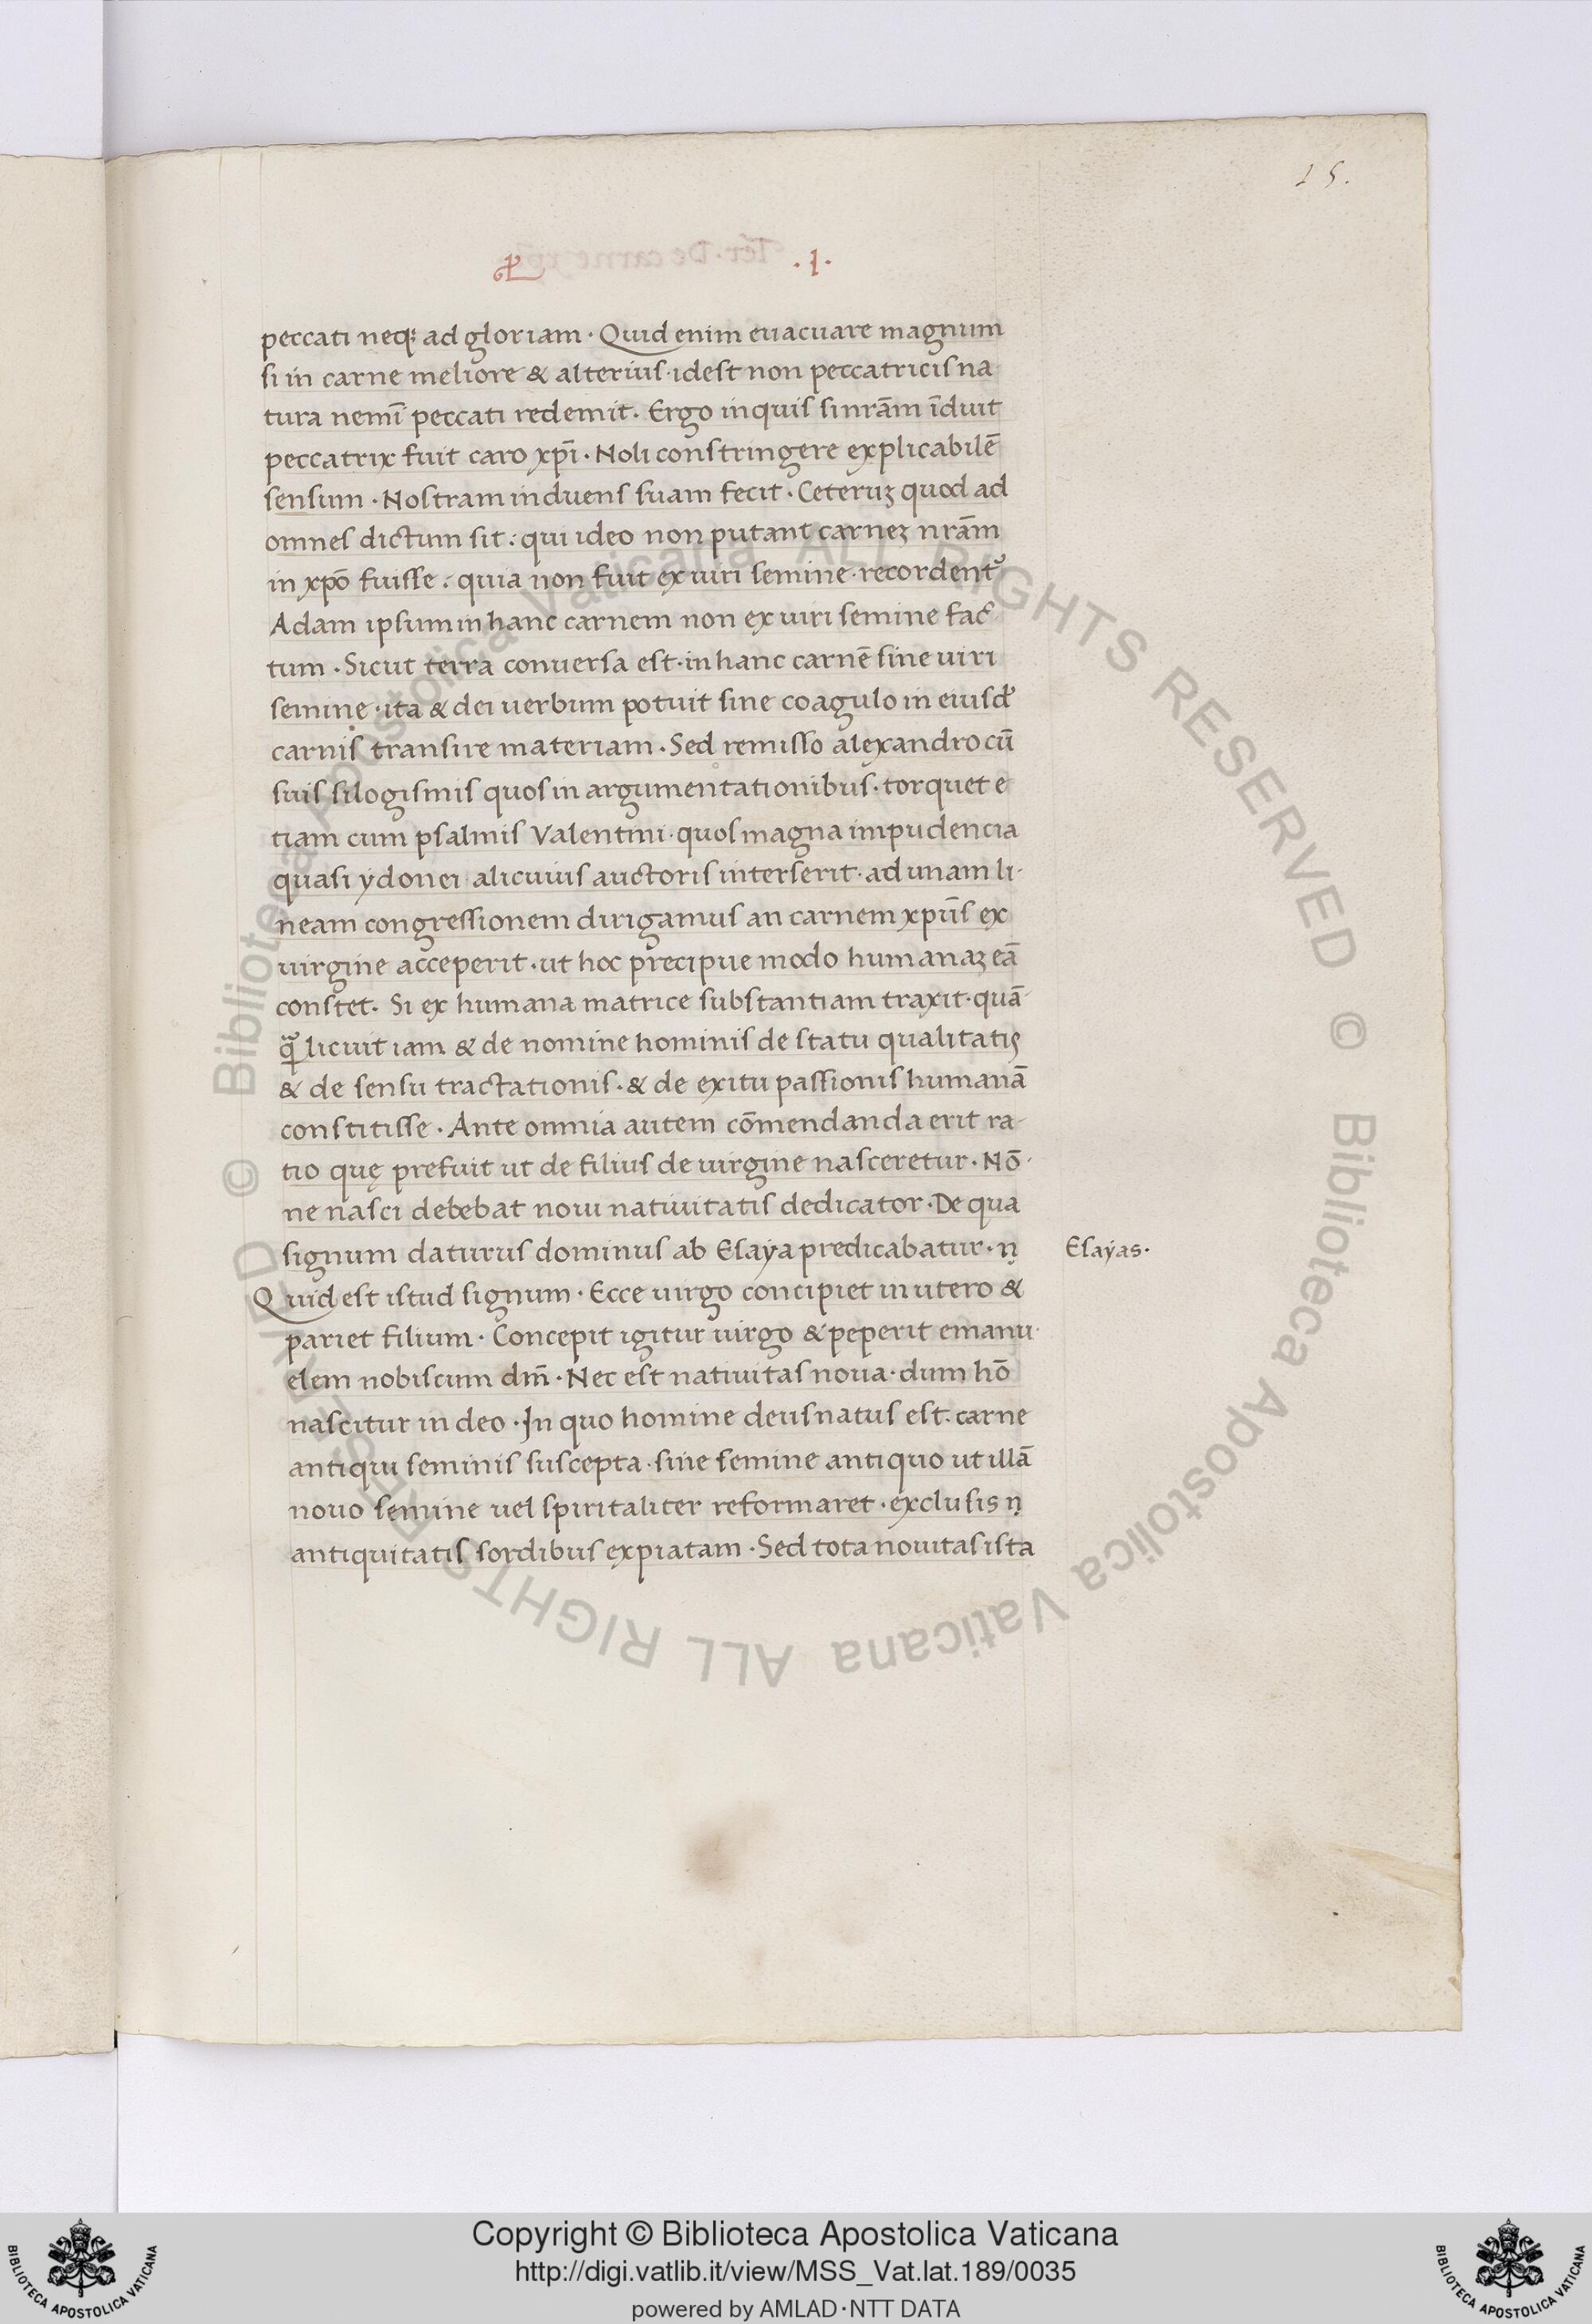 15.
.1.
peccati neq; ad gloriam · Quid enim euacuare magnum
si in carne meliore & alterius · idest non peccatricis na
tura nemī peccati redemit. Ergo inquis si nrām īduit
peccatrix fuit caro xp̄i · Noli constringere explicabilē
sensum · Nostram induens suam fecit · Ceteruꝫ quod ad
omnes dictum sit : qui ideo non putant carneꝫ nrām
in xpō fuisse : quia non fuit ex uiri semine · recordent᷑
Adam ipsum in hanc carnem non ex uiri semine fac-
tum · Sicut terra conuersa est · in hanc carnē sine uiri
semine · ita & dei uerbum potuit sine coagulo in eiusd᷑
carnis transire materiam · Sed remisso alexandro cū
suis silogismis quos in argumentationibus · torquet e
tiam cum psalmis Valentini · quos magna impudencia
quasi ydonei alicuius auctoris interserit · ad unam li-
neam congressionem dirigamus an carnem xpūs ex
uirgine acceperit · ut hoc precipue modo humanaꝫ eā
constet. Si ex humana matrice substantiam traxit · quā-
q̄ licuit iam & de nomine hominis de statu qualitatis
& de sensu tractationis · & de exitu passionis humanā
constitisse · Ante omnia autem cōmendanda erit ra-
tio quę prefuit ut de filius de uirgine nasceretur · Nō-
ne nasci debebat noui natiuitatis dedicator · De qua
signum daturus dominus ab Esaya predicabatur · n
Esayas.
Quid est istud signum · Ecce uirgo concipiet in utero &
pariet filium · Concepit igitur uirgo & peperit emanu-
elem nobiscum dm̄ · Nec est natiuitas noua · dum hō
nascitur in deo · In quo homine deus natus est · carne
antiqui seminis suscepta · sine semine antiquo ut illā
nouo semine uel spiritaliter reformaret · exclusis n
antiquitatis sordibus expiatam · Sed tota nouitas ista
© Biblioteca Apostolica Vaticana ALL RIGHTS RESERVED © Biblioteca Apostolica Vaticana ALL RIGHTS RESERVED
Copyright © Biblioteca Apostolica Vaticana
http://digi.vatlib.it/view/MSS_Vat.lat.189/0035
powered by AMLAD·NTT DATA
BIBLIOTECA APOSTOLICA VATICANA
BIBLIOTECA APOSTOLICA VATICANA